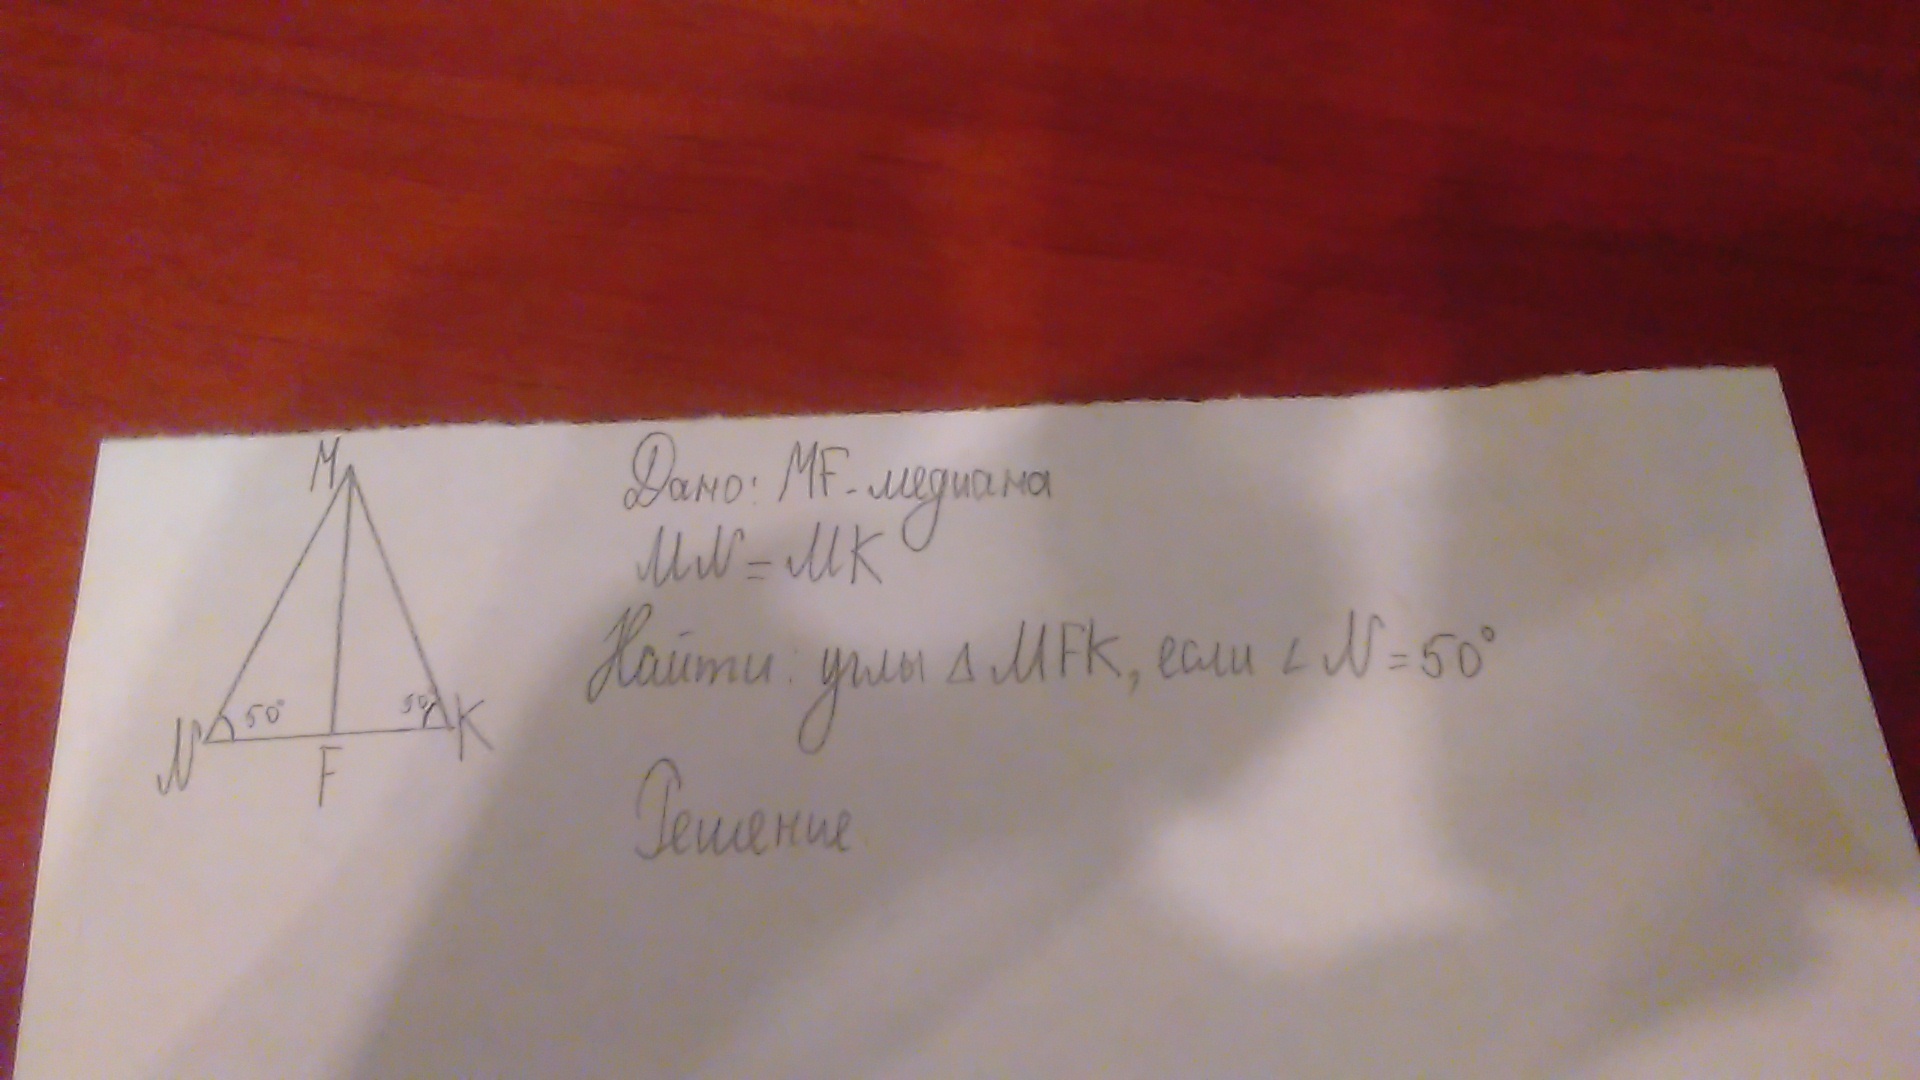 M
Дано: MF - медиана
MN = MK
Найти: углы Δ MFK, если ∠ N = 50°
50°
50°
N
F
K
Решение